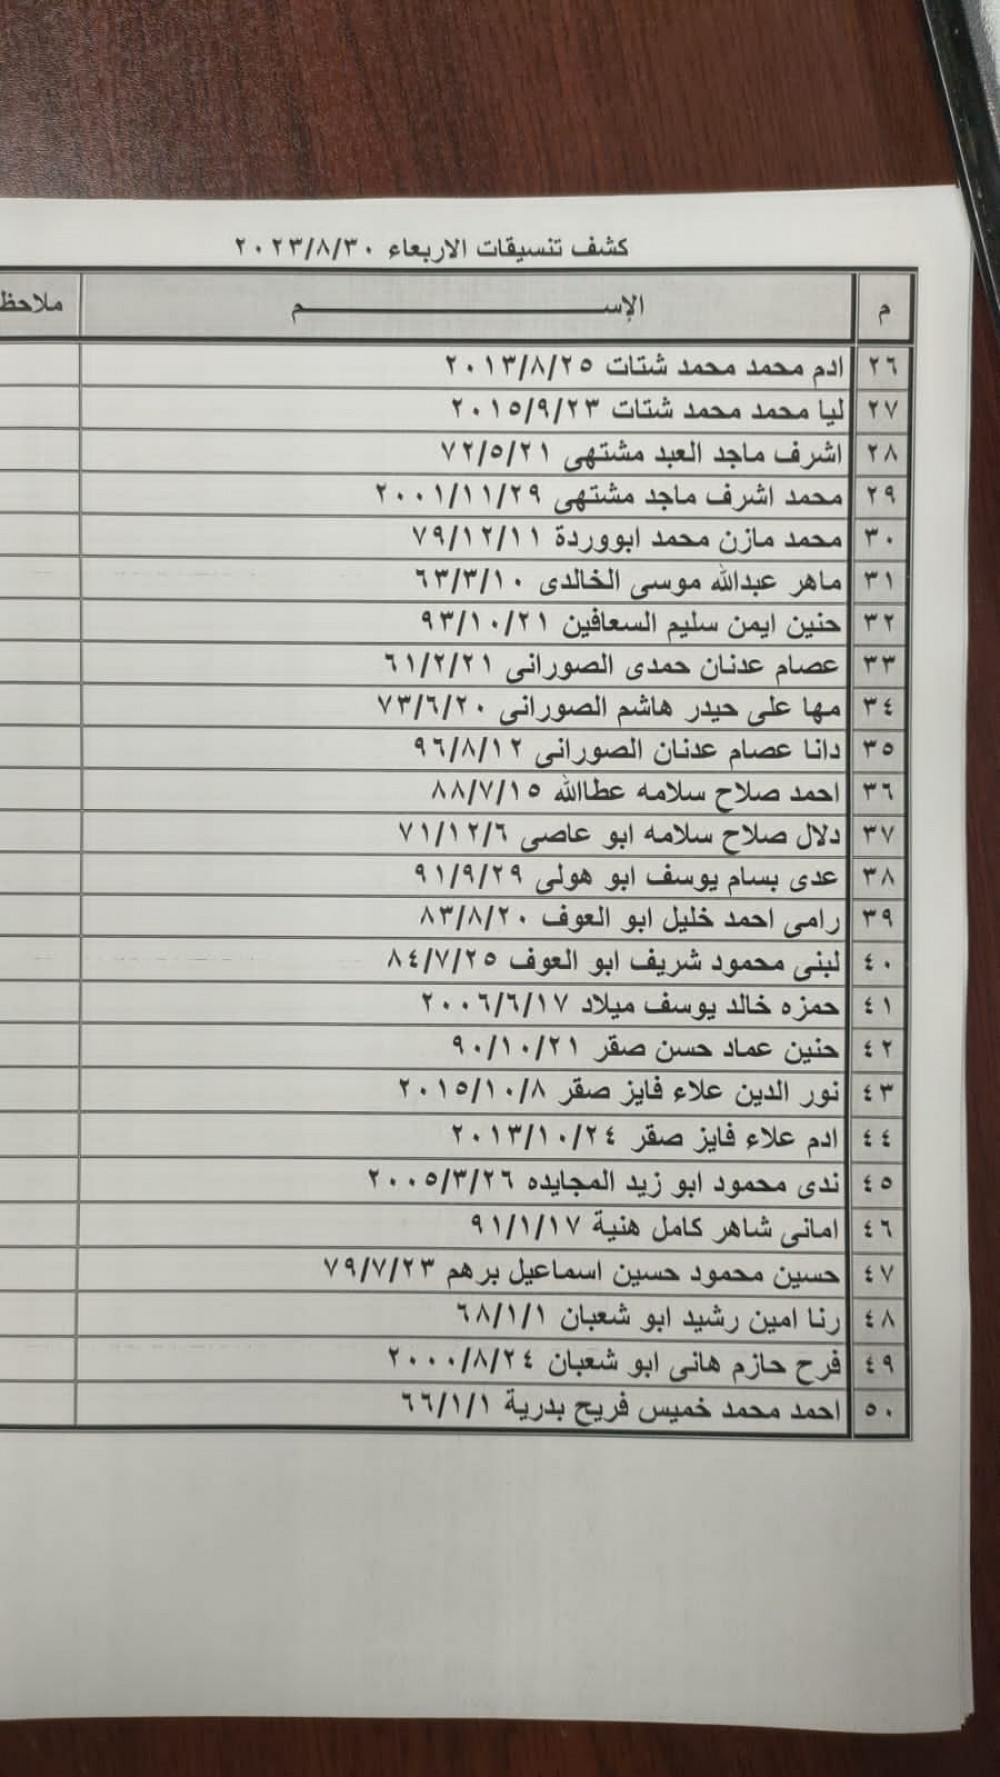 كشف تنسيقات الاربعاء ٢٠٢٣/٨/٣٠
م الإســــــم ملاحظ
٢٦ ادم محمد محمد شتات ٢٠١٣/٨/٢٥
٢٧ ليا محمد محمد شتات ٢٠١٥/٩/٢٣
٢٨ اشرف ماجد العبد مشتهى ٧٢/٥/٢١
٢٩ محمد اشرف ماجد مشتهى ٢٠٠١/١١/٢٩
٣٠ محمد مازن محمد ابووردة ٧٩/١٢/١١
٣١ ماهر عبدالله موسى الخالدى ٦٣/٣/١٠
٣٢ حنين ايمن سليم السعافين ٩٣/١٠/٢١
٣٣ عصام عدنان حمدى الصورانى ٦١/٢/٢١
٣٤ مها على حيدر هاشم الصورانى ٧٣/٦/٢٠
٣٥ دانا عصام عدنان الصورانى ٩٦/٨/١٢
٣٦ احمد صلاح سلامه عطاالله ٨٨/٧/١٥
٣٧ دلال صلاح سلامه ابو عاصى ٧١/١٢/٦
٣٨ عدى بسام يوسف ابو هولى ٩١/٩/٢٩
٣٩ رامى احمد خليل ابو العوف ٨٣/٨/٢٠
٤٠ لبنى محمود شريف ابو العوف ٨٤/٧/٢٥
٤١ حمزه خالد يوسف ميلاد ٢٠٠٦/٦/١٧
٤٢ حنين عماد حسن صقر ٩٠/١٠/٢١
٤٣ نور الدين علاء فايز صقر ٢٠١٥/١٠/٨
٤٤ ادم علاء فايز صقر ٢٠١٣/١٠/٢٤
٤٥ ندى محمود ابو زيد المجايده ٢٠٠٥/٣/٢٦
٤٦ امانى شاهر كامل هنية ٩١/١/١٧
٤٧ حسين محمود حسين اسماعيل برهم ٧٩/٧/٢٣
٤٨ رنا امين رشيد ابو شعبان ٦٨/١/١
٤٩ فرح حازم هانى ابو شعبان ٢٠٠٠/٨/٢٤
٥٠ احمد محمد خميس فريح بدرية ٦٦/١/١